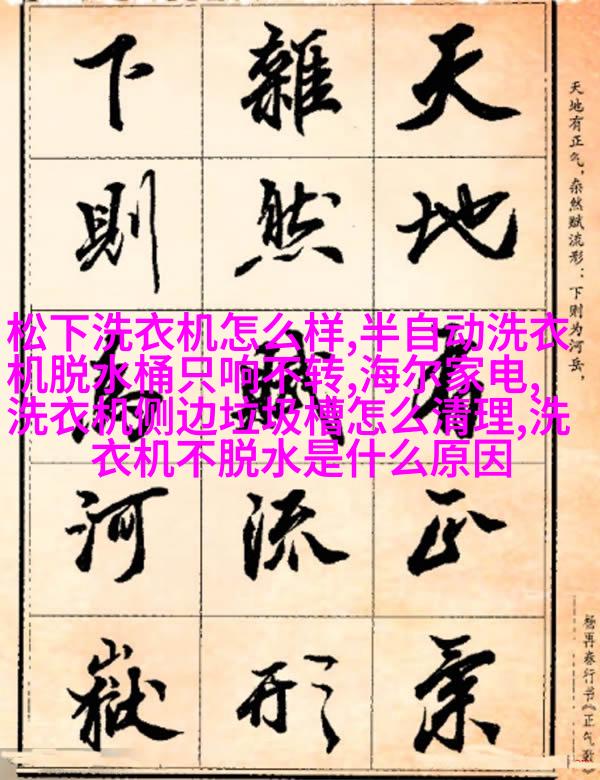 天地有正氣
雜然賦流形
下則為河嶽
天地有正气，杂然赋流形：下则为河岳，
杨再春行书《正气歌》
松下洗衣机怎么样,半自动洗衣
机脱水桶只响不转,海尔家电,
洗衣机侧边垃圾槽怎么清理,洗
衣机不脱水是什么原因